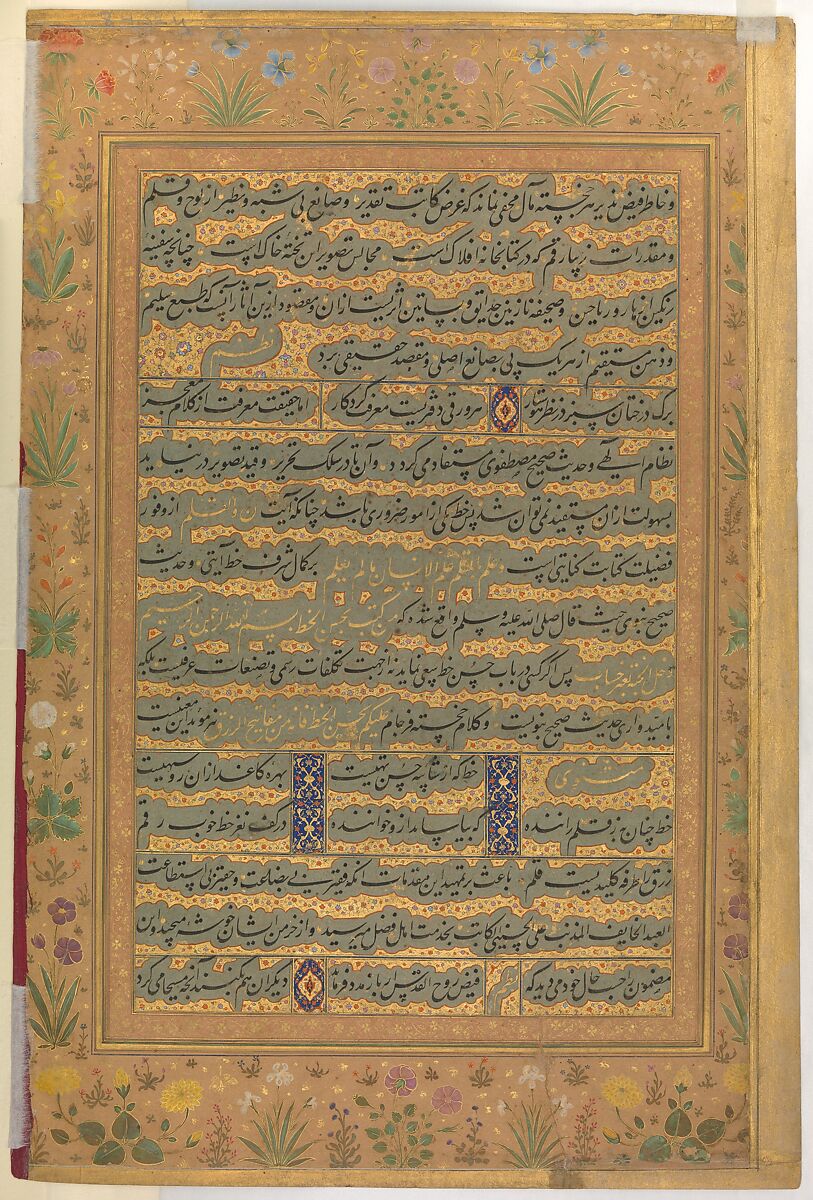 و خاطر فیض پذیر هر خجسته مآل مخفی نماند که غرض کاتب تقدیر و صانع بی شبه و نظیر از لوح و قلم
و مقدرات زیبا رقم که در کتابخانه افلاک است مجالس تصویر این تخته خاک است چنانچه سفینه
رنگین ازهار و ریاحین و صحیفه نازنین حدایق و بساتین اثریست ازان و مقصود ازین آثار آنست که طبع سلیم
و ذهن مستقیم از هر یک پی بصانع اصلی و مقصد حقیقی برد نظم
برک درختان سبز در نظر هوشیار هر ورقی دفتریست معرفت کردکار اما حقیقت معرفت از کلام معجز
نظام الهی و حدیث صحیح مصطفوی مستفاد می کردد و آن تا در سلک تحریر و قید تصویر در نیاید
بسهولت ازان مستفید نمی توان شد پس خط یکی از امور ضروری باشد چنانکه آیت ن والقلم از وفور
فضیلت کتابت کنایتی است و علم بالقلم علم الانسان مالم یعلم بر کمال شرف خط آیتی و حدیث
صحیح نبوی حیث قال صلی الله علیه و سلم واقع شده که من کتب بحسن الخط بسم الله الرحمن الرحیم
دخل الجنة بغیر حساب پس اکر کسی در باب حسن خط سعی نماید نه از جهت تکلفات رسمی و تصنعات عرفیست بلکه
بامیدواری حدیث صحیح نبویست و کلام خجسته فرجام علیکم بحسن الخط فانه من مفاتیح الرزق نیز موید این معنیست
مثنوی خط که از شایبه حسن تهیست بهره کاغذ ازان رو سیهیست
خط چنان به ز قلم راننده که بیاساید ازو خواننده در کف نغز خط خوب رقم
رزق را طرفه کلیدیست قلم باعث بر تمهید این مقدمات آنکه فقیر بی بضاعت و حقیر بی استطاعت
العبد الخایف المذنب علی الحسینی الکاتب بخدمت اهل فضل میرسید و از خرمن ایشان خوشه میچید و این
مضمون را حسب حال خود می دید که نظم فیض روح القدس ار باز مدد فرماید دیکران هم بکنند آنچه مسیحا می کرد